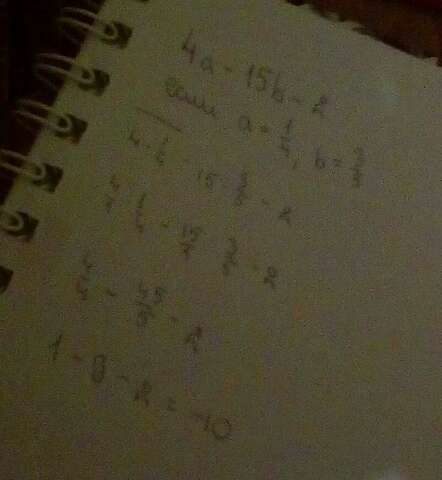 4a - 15b - 2
если a = 1/4, b = 3/5
4 · 1/4 - 15 · 3/5 - 2
4/1 · 1/4 - 15/1 · 3/5 - 2
4/4 - 45/5 - 2
1 - 9 - 2 = -10